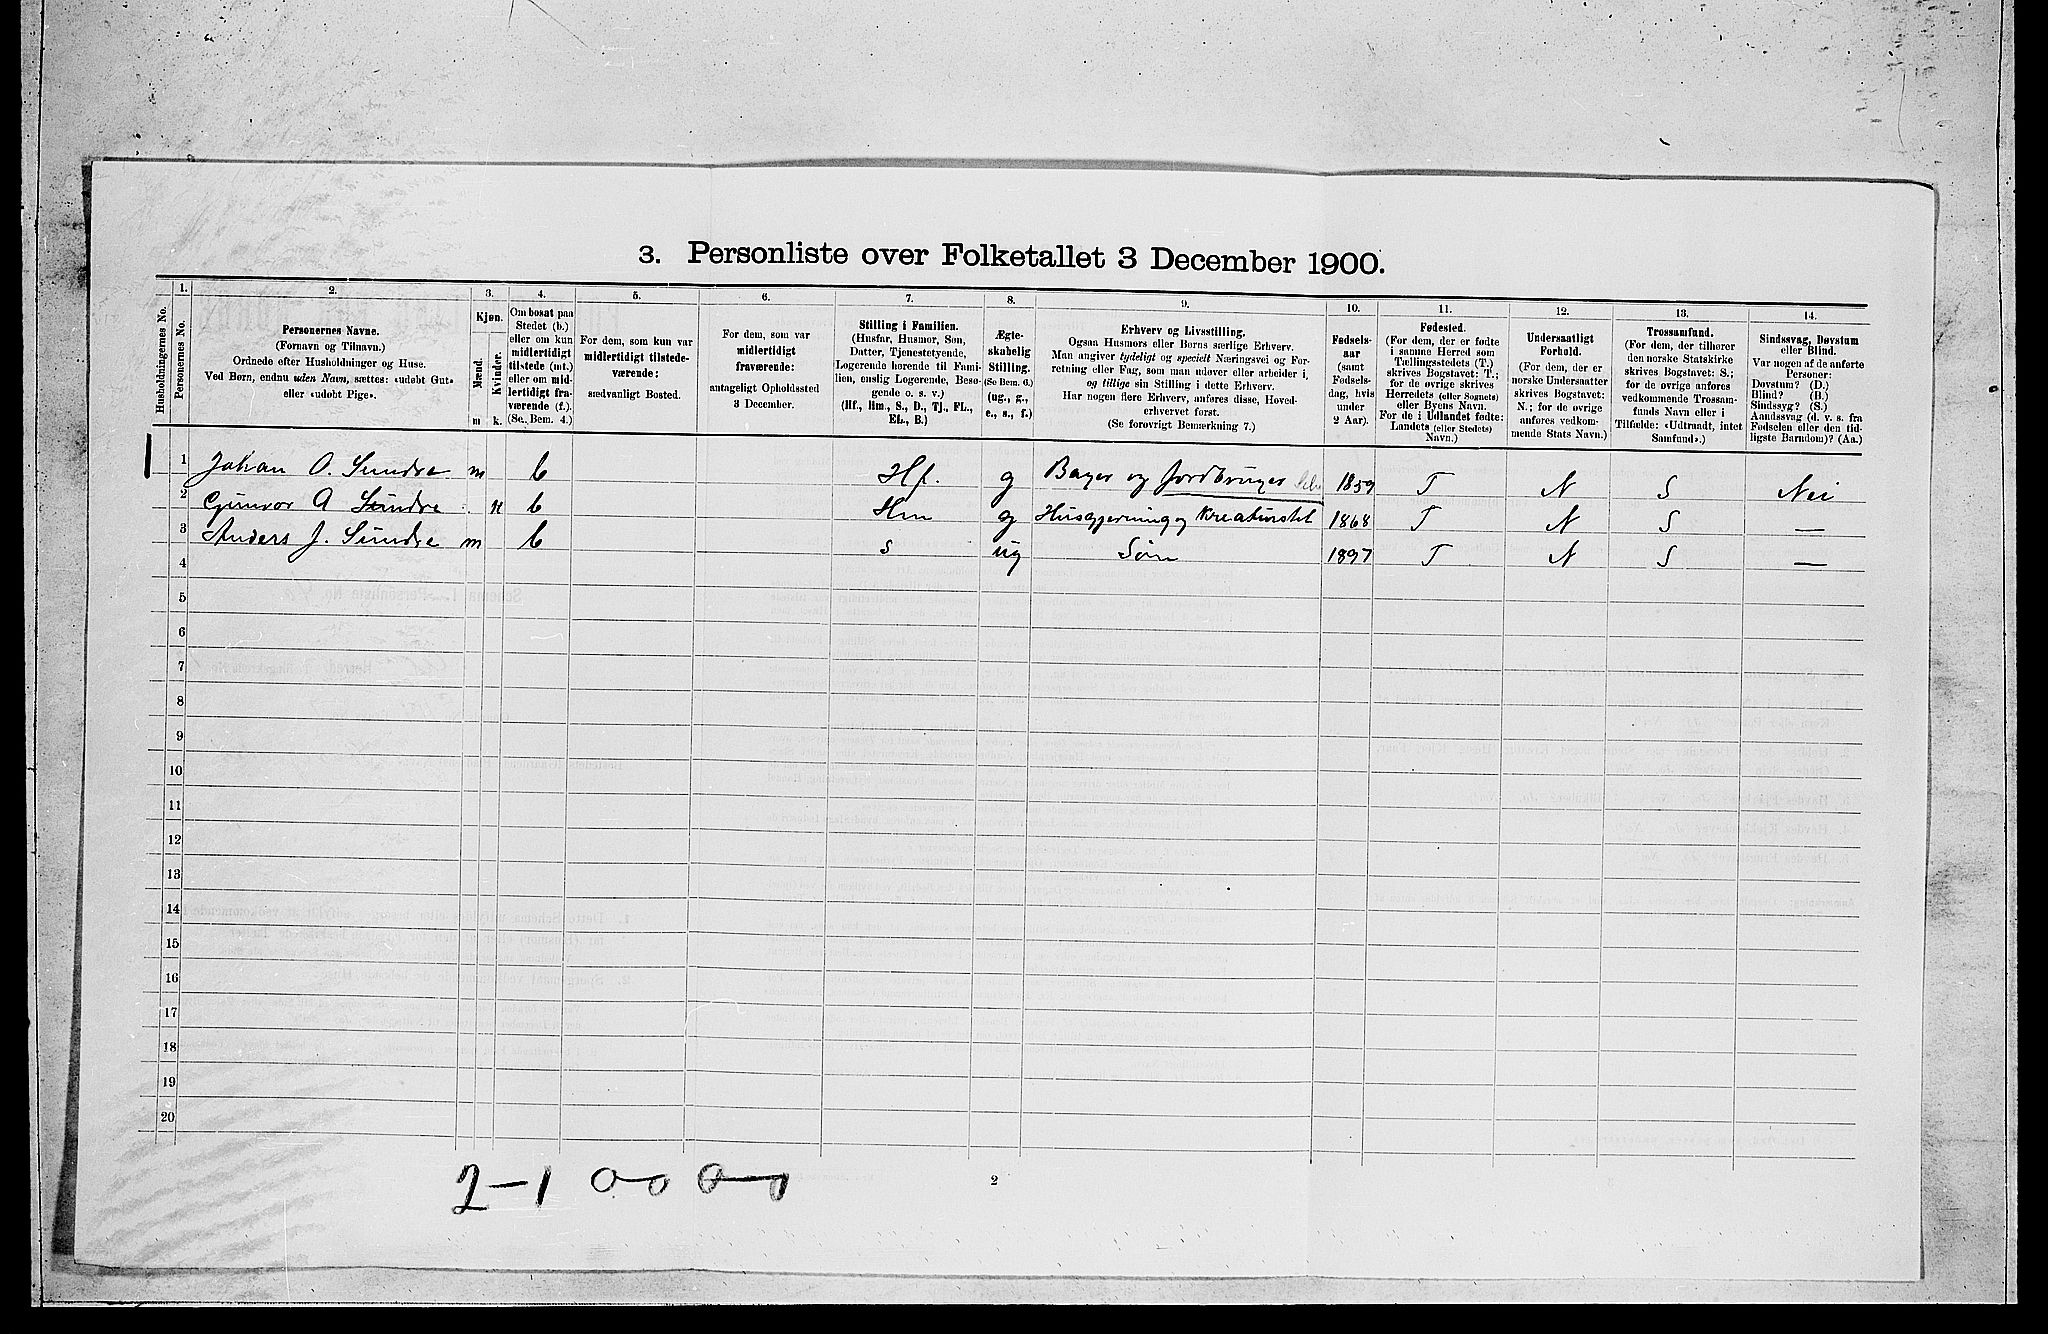 3. Personliste over Folketallet 3 December 1900.
1. 2. 3. 4. 5. 6. 7. 8. 9. 10. 11. 12. 13. 14.
Husholdningernes No.
Personernes No.
Personernes Navne.
(Fornavn og Tilnavn.)
Ordnede efter Husholdninger og Huse.
Ved Børn, endnu uden Navn, sættes: «udøbt Gut»
eller «udøbt Pige».
Kjøn.
Mænd.
Kvinder.
m k.
Om bosat paa
Stedet (b.)
eller om kun
midlertidigt
tilstede (mt.)
eller om mid-
lertidigt fra-
værende (f.).
(Se. Bem. 4.)
For dem, som kun var
midlertidigt tilstede-
værende:
sædvanligt Bosted.
For dem, som var
midlertidigt
fraværende:
antageligt Opholdssted
3 December.
Stilling i Familien.
(Husfar, Husmor, Søn,
Datter, Tjenestetyende,
Logerende hørende til Fami-
lien, enslig Logerende, Besø-
gende o. s. v.)
(Hf., Hm., S., D., Tj., FL.,
EL., B.)
Ægte-
skabelig
Stilling.
(Se Bem. 6.)
(ug., g.,
e., s., f.)
Erhverv og Livsstilling.
Ogsaa Husmors eller Børns særlige Erhverv.
Man angiver tydeligt og specielt Næringsvei og For-
retning eller Fag, som man udøver eller arbeider i,
og tillige sin Stilling i dette Erhverv.
Har nogen flere Erhverv, anføres disse, Hoved-
erhvervet først.
(Se forøvrigt Bemærkning 7.)
Fødsels-
aar
(samt
Fødsels-
dag, hvis
under
2 Aar).
Fødested.
(For dem, der er fødte
i samme Herred som
Tællingsstedets (T.)
skrives Bogstavet: T.;
for de øvrige skrives
Herredets (eller Sognets)
eller Byens Navn.
For de i Udlandet fødte:
Landets (eller Stedets)
Navn.)
Undersaatligt
Forhold.
(For dem, der er
norske Undersaatter
skrives Bogstavet:
N.; for de øvrige
anføres vedkom-
mende Stats Navn.)
Trossamfund.
(For dem, der tilhører
den norske Statskirke
skrives Bogstavet: S.;
for de øvrige anføres
vedkommende Trossam-
funds Navn eller i
Tilfælde: «Udtraadt, intet
Samfund».)
Sindssvag, Døvstum
eller Blind.
Var nogen af de anførte
Personer:
Døvstum? (D.)
Blind? (B.)
Sindssyg? (S.)
Aandssvag (d. v. s. fra
Fødselen eller den tid-
ligste Barndom)? (Aa.)
1 Johan O. Sundre m b Hf. g Bager og Jordbruger 1859 T N S Nei
2 Gunvor A Sundre k b Hm g Husgjerning og Kreaturstel 1868 T N S —
3 Anders J. Sundre m b s ug Søn 1897 T N S —
4
5
6
7
8
9
10
11
12
13
14
15
16
17
18
19
20
2-1 0-0 0-0
2